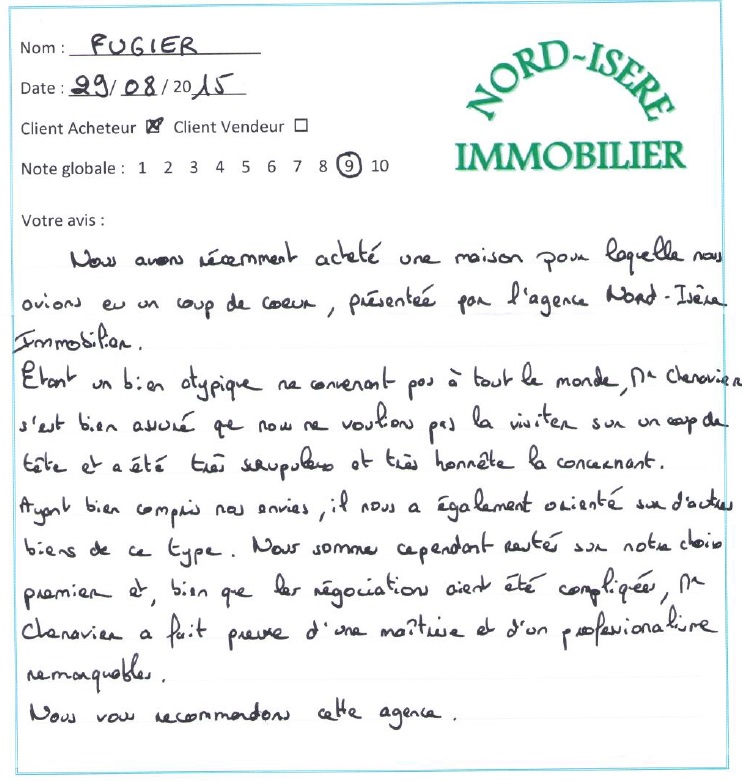 Nom : FUGIER
Date : 29/08/2015
NORD-ISERE
IMMOBILIER
Client Acheteur ☒ Client Vendeur ☐
Note globale : 1 2 3 4 5 6 7 8 9 10
Votre avis :
Nous avons récemment acheté une maison pour laquelle nous
avions eu un coup de coeur, présentée par l'agence Nord-Isère
Immobilier.
Etant un bien atypique ne convenant pas à tout le monde, Mr Chenavier
s'est bien assuré que nous ne voulions pas la visiter sur un coup de
tête et a été très scrupuleux et très honnête la concernant.
Ayant bien compris nos envies, il nous a également orienté sur d'autres
biens de ce type. Nous somme cependant restés sur notre choix
premier et, bien que les négociation aient été compliquées, Mr
Chenavier a fait preuve d'une maîtrise et d'un professionalisme
remarquables.
Nous vous recommandons cette agence.